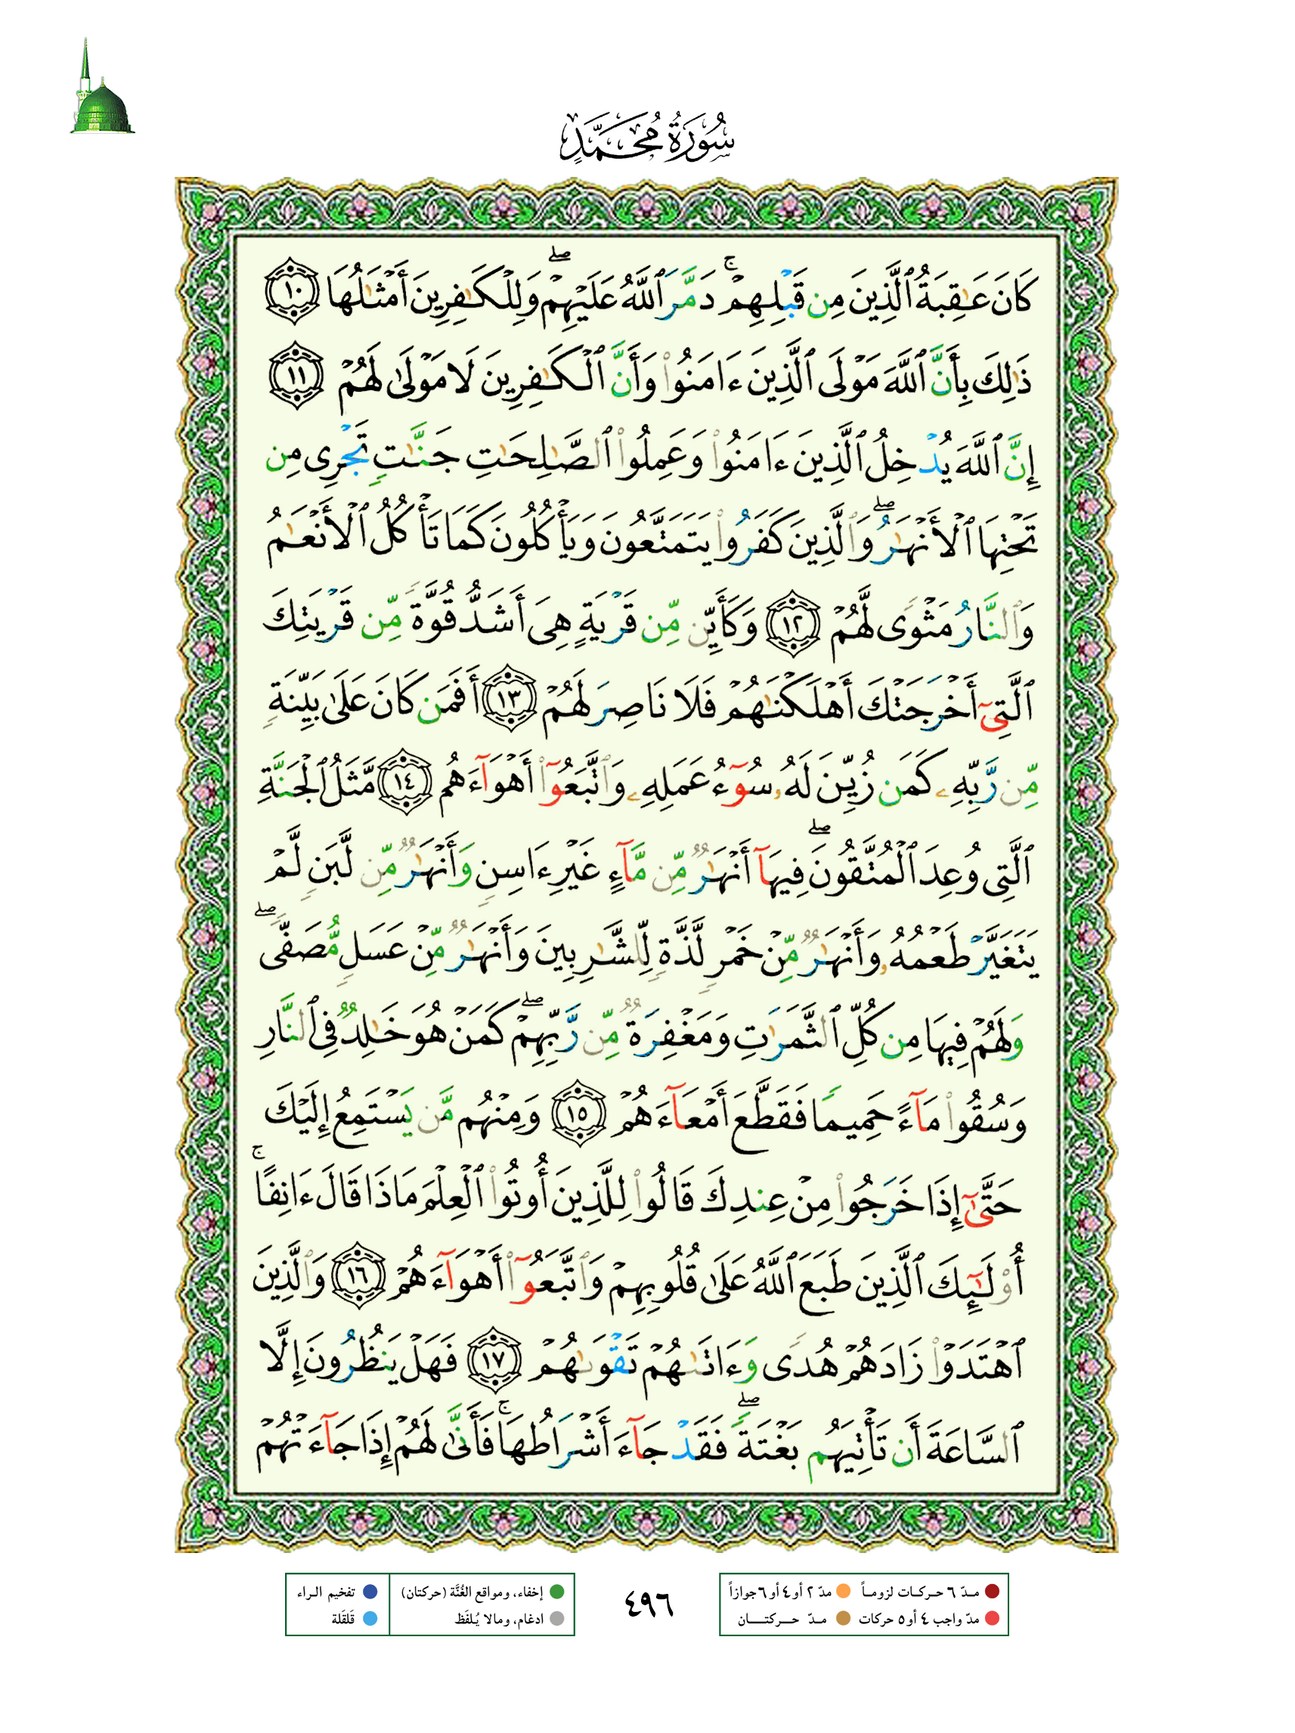 سُورَةُ مُحَمَّدٍ
كَانَ عَـٰقِبَةُ ٱلَّذِينَ مِن قَبۡلِهِمۡۚ دَمَّرَ ٱللَّهُ عَلَيۡهِمۡۖ وَلِلۡكَـٰفِرِينَ أَمۡثَـٰلُهَا ١٠
ذَٰلِكَ بِأَنَّ ٱللَّهَ مَوۡلَى ٱلَّذِينَ ءَامَنُواْ وَأَنَّ ٱلۡكَـٰفِرِينَ لَا مَوۡلَىٰ لَهُمۡ ١١
إِنَّ ٱللَّهَ يُدۡخِلُ ٱلَّذِينَ ءَامَنُواْ وَعَمِلُواْ ٱلصَّـٰلِحَـٰتِ جَنَّـٰتٖ تَجۡرِي مِن
تَحۡتِهَا ٱلۡأَنۡهَـٰرُۖ وَٱلَّذِينَ كَفَرُواْ يَتَمَتَّعُونَ وَيَأۡكُلُونَ كَمَا تَأۡكُلُ ٱلۡأَنۡعَـٰمُ
وَٱلنَّارُ مَثۡوٗى لَّهُمۡ ١٢ وَكَأَيِّن مِّن قَرۡيَةٍ هِيَ أَشَدُّ قُوَّةٗ مِّن قَرۡيَتِكَ
ٱلَّتِيٓ أَخۡرَجَتۡكَ أَهۡلَكۡنَـٰهُمۡ فَلَا نَاصِرَ لَهُمۡ ١٣ أَفَمَن كَانَ عَلَىٰ بَيِّنَةٖ
مِّن رَّبِّهِۦ كَمَن زُيِّنَ لَهُۥ سُوٓءُ عَمَلِهِۦ وَٱتَّبَعُوٓاْ أَهۡوَآءَهُم ١٤ مَّثَلُ ٱلۡجَنَّةِ
ٱلَّتِي وُعِدَ ٱلۡمُتَّقُونَۖ فِيهَآ أَنۡهَـٰرٞ مِّن مَّآءٍ غَيۡرِ ءَاسِنٖ وَأَنۡهَـٰرٞ مِّن لَّبَنٖ لَّمۡ
يَتَغَيَّرۡ طَعۡمُهُۥ وَأَنۡهَـٰرٞ مِّنۡ خَمۡرٖ لَّذَّةٖ لِّلشَّـٰرِبِينَ وَأَنۡهَـٰرٞ مِّنۡ عَسَلٖ مُّصَفّٗىۖ
وَلَهُمۡ فِيهَا مِن كُلِّ ٱلثَّمَرَٰتِ وَمَغۡفِرَةٞ مِّن رَّبِّهِمۡۖ كَمَنۡ هُوَ خَـٰلِدٞ فِي ٱلنَّارِ
وَسُقُواْ مَآءً حَمِيمٗا فَقَطَّعَ أَمۡعَآءَهُمۡ ١٥ وَمِنۡهُم مَّن يَسۡتَمِعُ إِلَيۡكَ
حَتَّىٰٓ إِذَا خَرَجُواْ مِنۡ عِندِكَ قَالُواْ لِلَّذِينَ أُوتُواْ ٱلۡعِلۡمَ مَاذَا قَالَ ءَانِفًاۚ
أُوْلَـٰٓئِكَ ٱلَّذِينَ طَبَعَ ٱللَّهُ عَلَىٰ قُلُوبِهِمۡ وَٱتَّبَعُوٓاْ أَهۡوَآءَهُمۡ ١٦ وَٱلَّذِينَ
ٱهۡتَدَوۡاْ زَادَهُمۡ هُدٗى وَءَاتَىٰهُمۡ تَقۡوَىٰهُمۡ ١٧ فَهَلۡ يَنظُرُونَ إِلَّا
ٱلسَّاعَةَ أَن تَأۡتِيَهُم بَغۡتَةٗۖ فَقَدۡ جَآءَ أَشۡرَاطُهَاۚ فَأَنَّىٰ لَهُمۡ إِذَا جَآءَتۡهُمۡ
مدّ ٦ حركات لزوماً مدّ ٢ أو ٤ أو ٦ جوازاً
مدّ واجب ٤ أو ٥ حركات مدّ حركتان
٤٩٦
إخفاء، ومواقع الغُنَّة (حركتان) تفخيم الراء
ادغام، ومالا يُلفَظ قلقلة